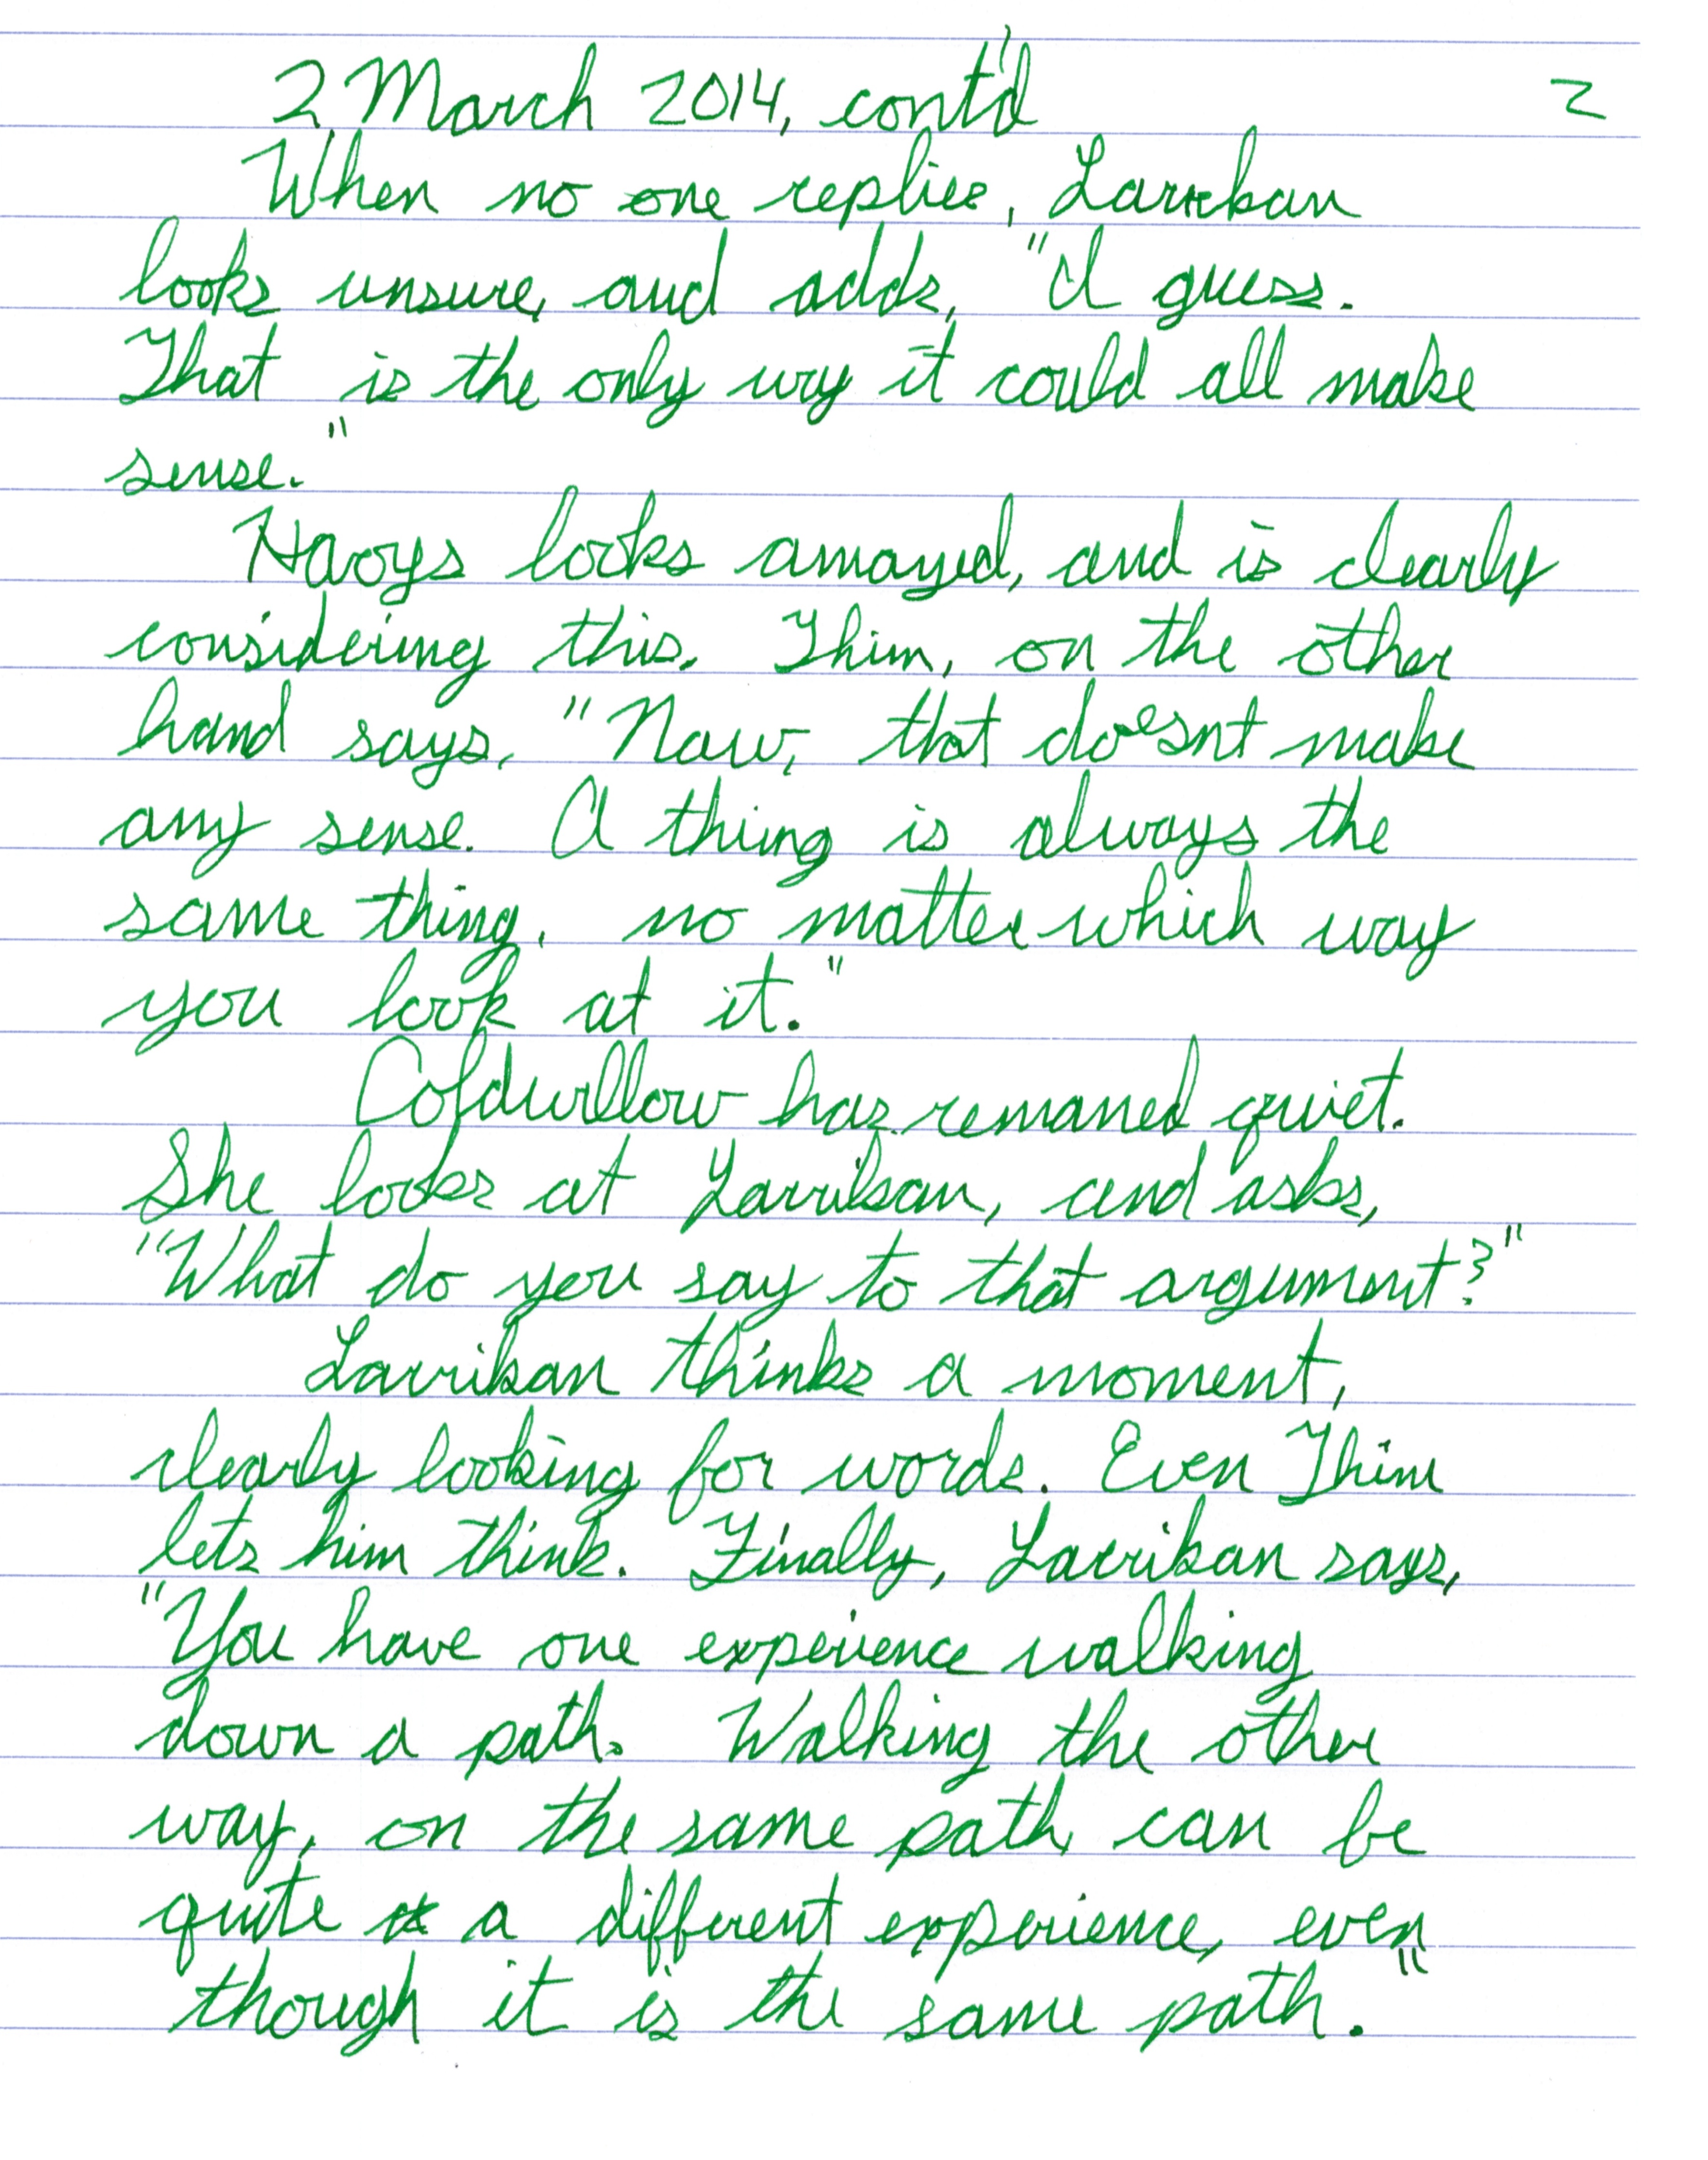 2 March 2014, cont'd 2
When no one replies, Larrikan
looks unsure, and adds, "I guess.
That is the only way it could all make
sense."
Haoys looks amazed, and is clearly
considering this. Thim, on the other
hand says, "Naw, that doesnt make
any sense. A thing is always the
same thing, no matter which way
you look at it."
Coldwillow has remaned quiet.
She looks at Larrikan, and asks,
"What do you say to that argument?"
Larrikan thinks a moment,
clearly looking for words. Even Thim
lets him think. Finally, Larrikan says,
"You have one experience walking
down a path. Walking the other
way, on the same path, can be
quite a different experience, even
though it is the same path."